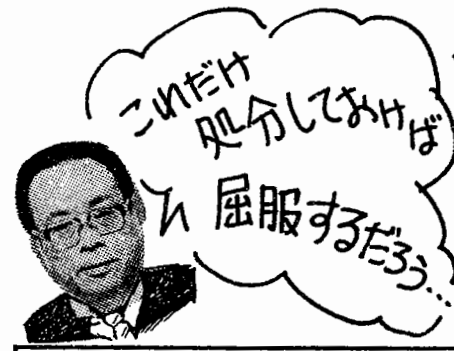 これだけ
処分しておけば
屈服するだろう…